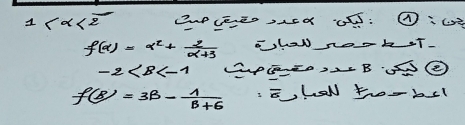 ① : ليكن α عدد حقيقي حيث 1 < α < 2
- أعط حصر للعبارة f(α) = α² + 2/(α+3)
② ليكن B عدد حقيقي حيث -2 < B < -1
اعط حصرا للعبارة : f(B) = 3B - 1/(B+6)